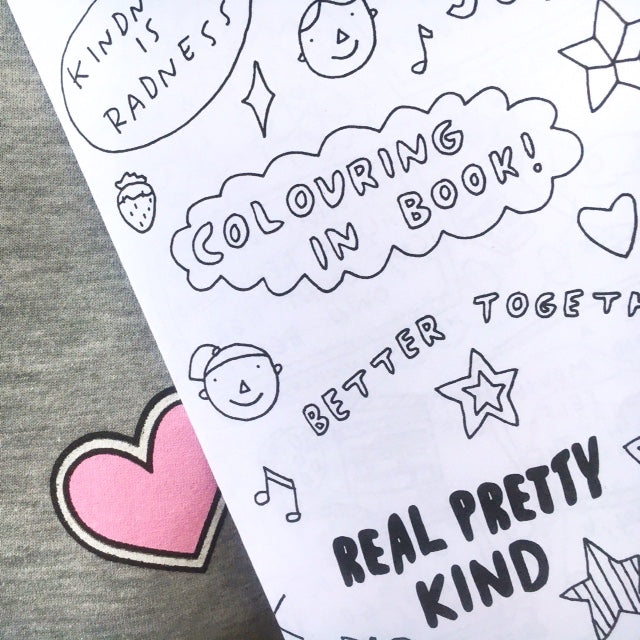 KINDN
IS
RADNESS
COLOURING
IN BOOK!
BETTER TOGETH
REAL PRETTY
KIND